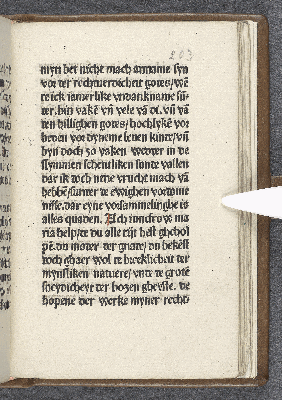 203
myn bet nicht mach anname syn
vor der rechtverdicheit godes/ wen̄
te ick iamerlike vndanckname sū-
der, bin vakē vn̄ vele vā di. vn̄ vā
den hillighen godes/ hochlykē vor
beden vordynene leuen kint/ vn̄
byn doch so vaken wedder in de
slymmen scheutliken sunde vallen
dar ik noch nene vrucht mach vā
hebbē/ sunder te ewighen vordome
nisse. dar eyne vorsammelinghe is
alles quaden. Ach iuncfrow ma
ria help/ de du alle tyd best ghehol
pē. du moder der gnade/ du bekēst
doch ghaer wol de broeklicheit der
mynsliken nature/ vnde de grote
schydicheyt der bozen gheyste. de
hopene der werke myner recht-